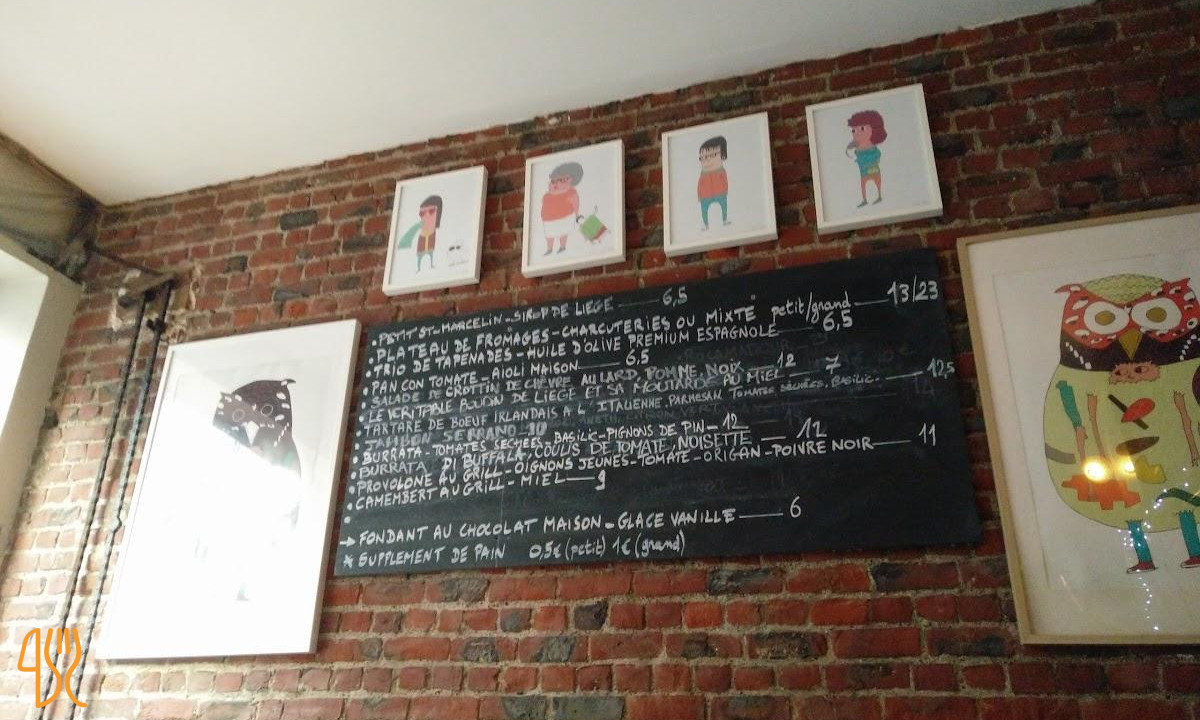 PETIT ST-MARCELIN - SIROP DE LIEGE — 6,5
• PLATEAU DE FROMAGES - CHARCUTERIES OU MIXTE petit/grand — 13/23
• TRIO DE TAPENADES - HUILE D'OLIVE PREMIUM ESPAGNOLE — 6,5
• PAN CON TOMATE - AIOLI MAISON — 6,5
• SALADE DE CROTTIN DE CHÈVRE AU LARD, POMME, NOIX — 12
• LE VERITABLE BOUDIN DE LIEGE ET SA MOUTARDE AU MIEL — 7
• TARTARE DE BOEUF IRLANDAIS A L'ITALIENNE, PARMESAN, TOMATES SÉCHÉES, BASILIC. — 12,5
• JAMBON SERRANO - 10
• BURRATA - TOMATES SÉCHÉES - BASILIC - PIGNONS DE PIN - 12
• BURRATA DI BUFFALA, COULIS DE TOMATE, NOISETTE — 12
• PROVOLONE AU GRILL - OIGNONS JEUNES - TOMATE - ORIGAN - POIVRE NOIR — 11
• CAMEMBERT AU GRILL - MIEL — 9
•
→ FONDANT AU CHOCOLAT MAISON - GLACE VANILLE — 6
* SUPPLEMENT DE PAIN 0.5€ (petit) 1€ (grand)